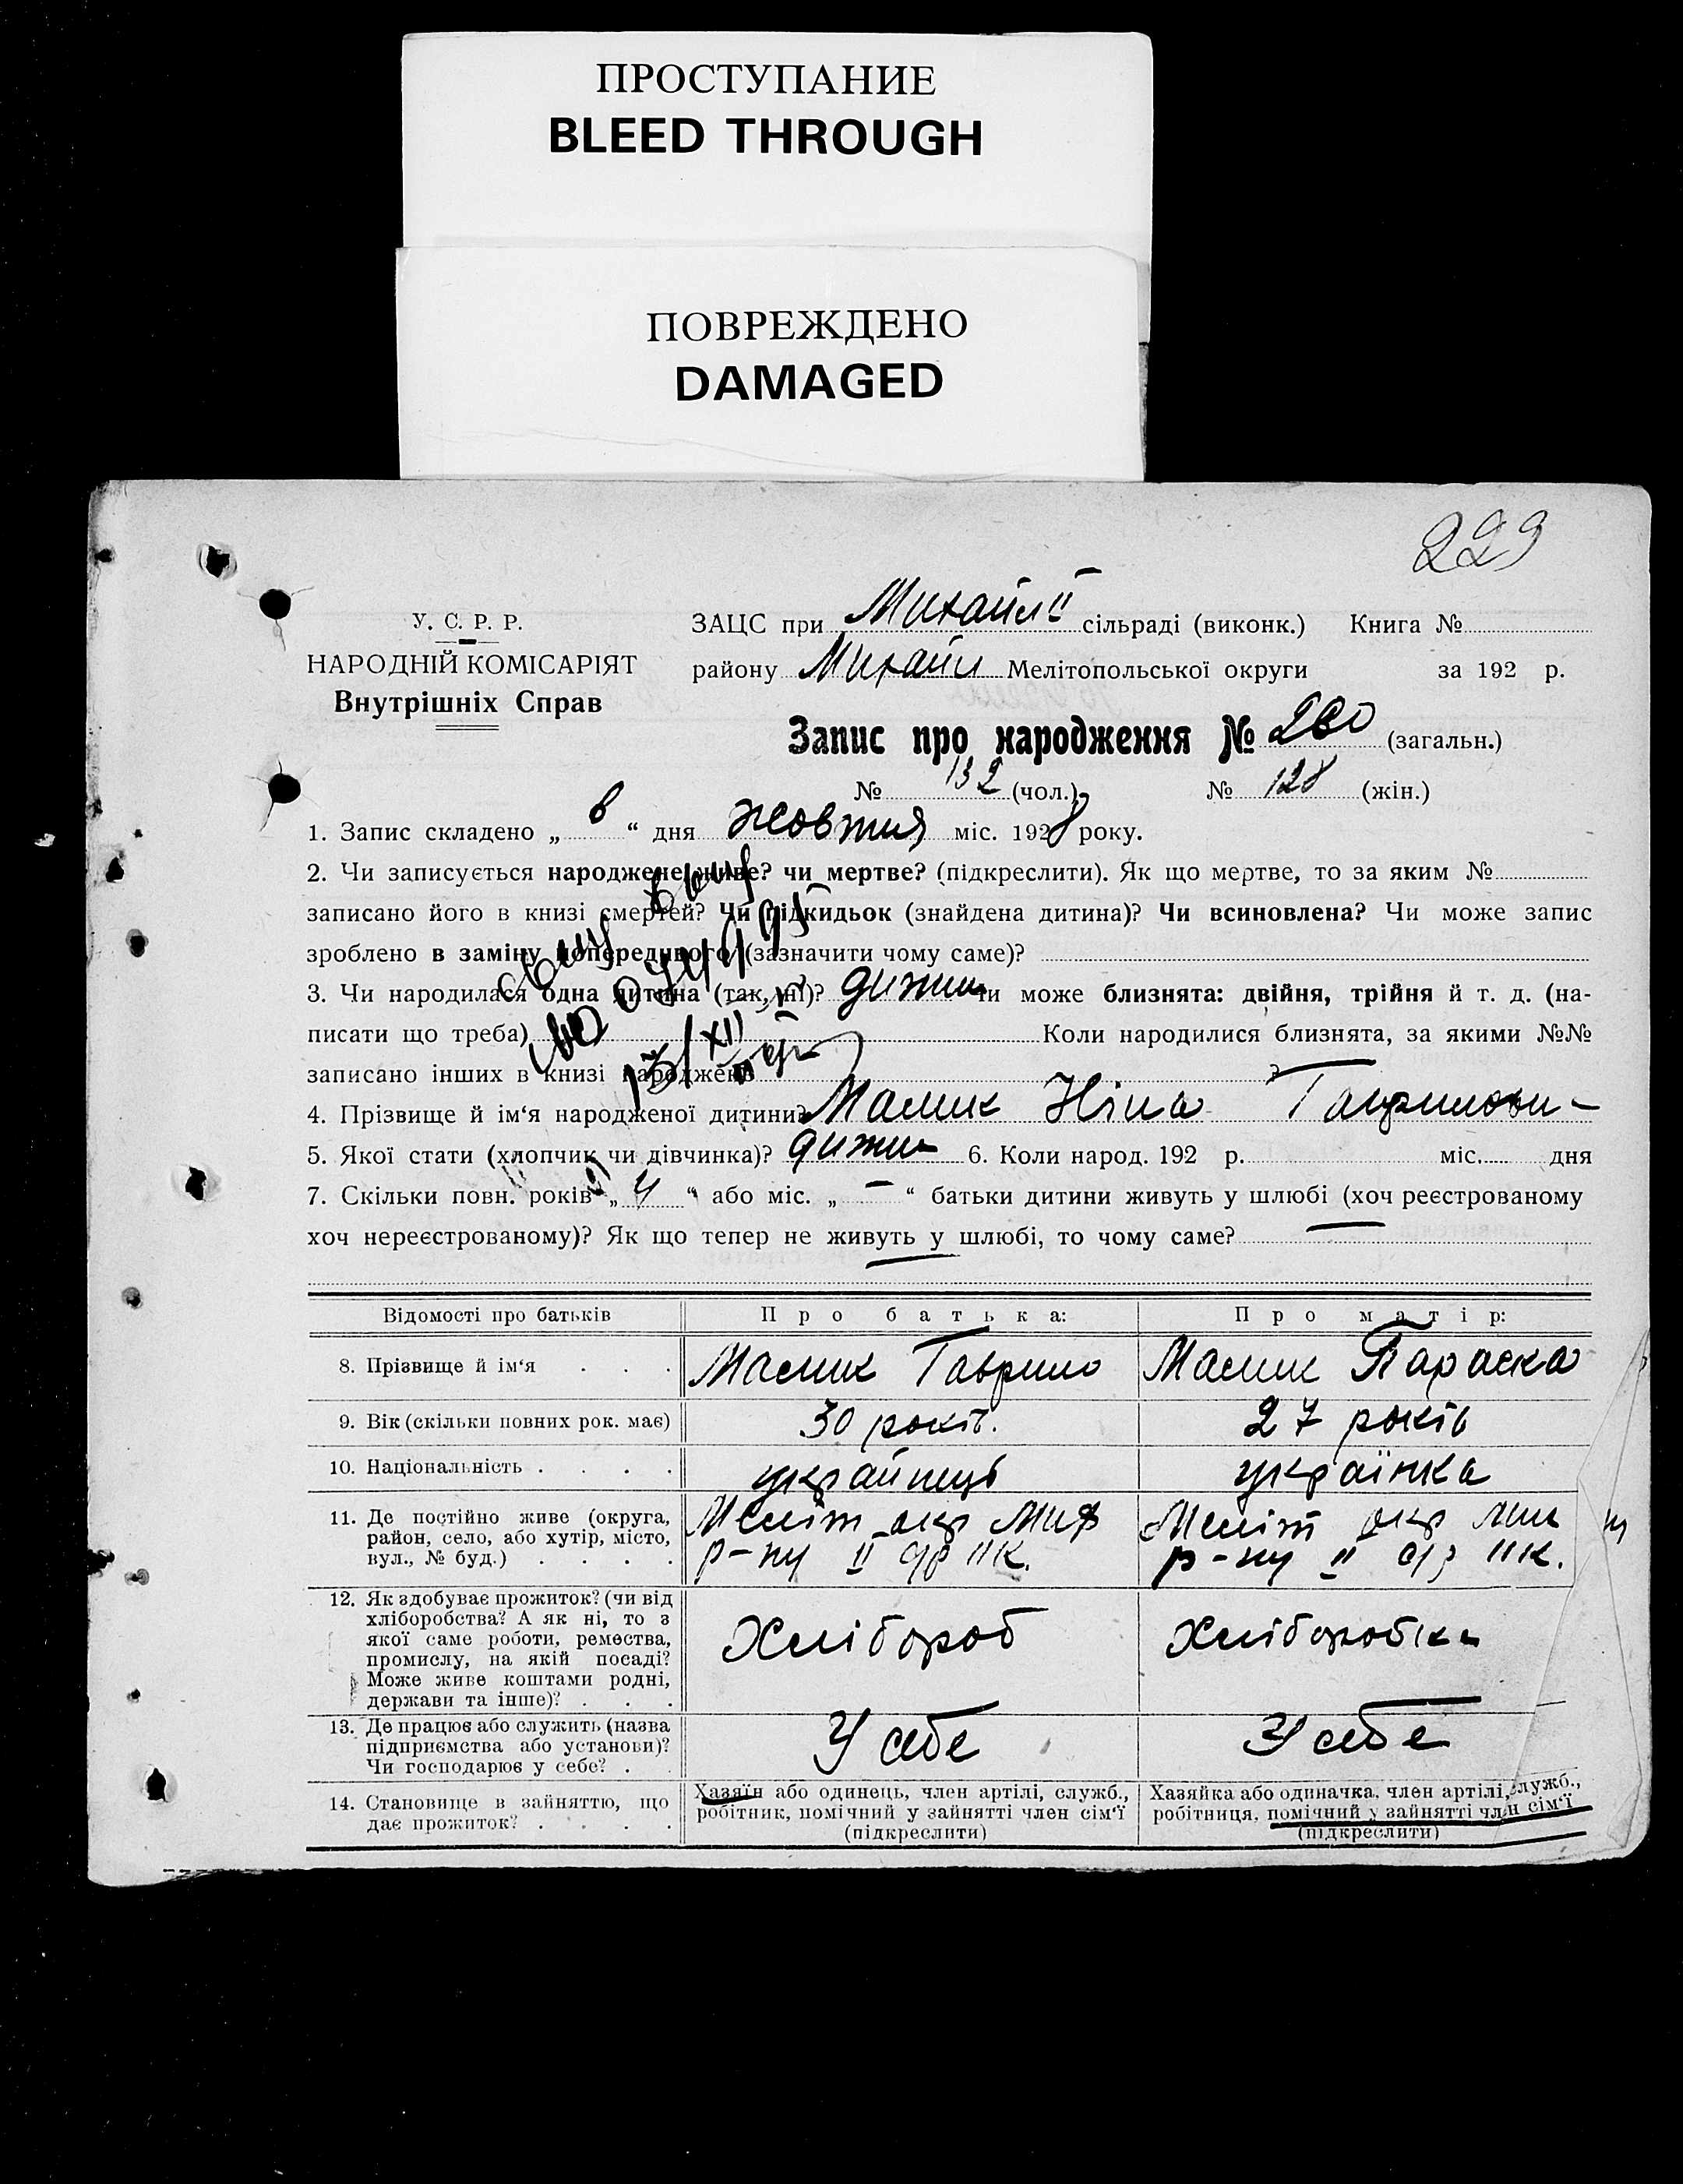 ПРОСТУПАНИЕ
BLEED THROUGH
ПОВРЕЖДЕНО
DAMAGED
229
У. С. Р. Р.
НАРОДНІЙ КОМІСАРІЯТ
Внутрішніх Справ
ЗАЦС при Михайл II сільраді (виконк.) Книга №
району Михайл Мелітопольської округи за 192 р.
Запис про народження № 260 (загальн.)
№ 132 (чол.) № 128 (жін.)
1. Запис складено „ 6 “ дня жовтня міс. 1928 року.
2. Чи записується народжене живе? чи мертве? (підкреслити). Як що мертве, то за яким №
записано його в книзі смертей? Чи підкидьок (знайдена дитина)? Чи всиновлена? Чи може запис
зроблено в заміну попереднього (зазначити чому саме)?
3. Чи народилася одна дитина (так, ні)? чи може близнята: двійня, трійня й т. д. (на-
писати що треба) Коли народилися близнята, за якими №№
записано інших в книзі народжень ?
4. Прізвище й ім‘я народженої дитини? Малик Ніна
5. Якої стати (хлопчик чи дівчинка)? 6. Коли народ. 192 р. міс. дня
7. Скільки повн. років „ 4 “ або міс. „ – “ батьки дитини живуть у шлюбі (хоч реєстрованому
хоч нереєстрованому)? Як що тепер не живуть у шлюбі, то чому саме? —
Відомості про батьків Про батька: Про матір:
8. Прізвище й ім‘я . . . Малик Гаврило Малик Параска
9. Вік (скільки повних рок. має) 30 років. 27 років
10. Національність . . . . українець українка
11. Де постійно живе (округа,
район, село, або хутір, місто,
вул., № буд.) . . . .
Меліт окр Мих
р-ну II
Меліт окр Мих
р-ну II
12. Як здобуває прожиток? (чи від
хліборобства? А як ні, то з
якої саме роботи, ремества,
промислу, на якій посаді?
Може живе коштами родні,
держави та інше)? . . .
Хлібороб Хліборобка
13. Де працює або служить (назва
підприємства або установи)?
Чи господарює у себе? .
У себе У себе
14. Становище в зайняттю, що
дає прожиток? . . . .
Хазяїн або одинець, член артілі, служб.,
робітник, помічний у зайнятті член сім‘ї
(підкреслити)
Хазяйка або одиначка, член артілі, служб.,
робітниця, помічний у зайнятті член сім‘ї
(підкреслити)